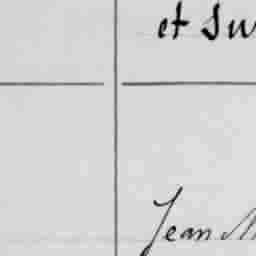 et Su
Jean M